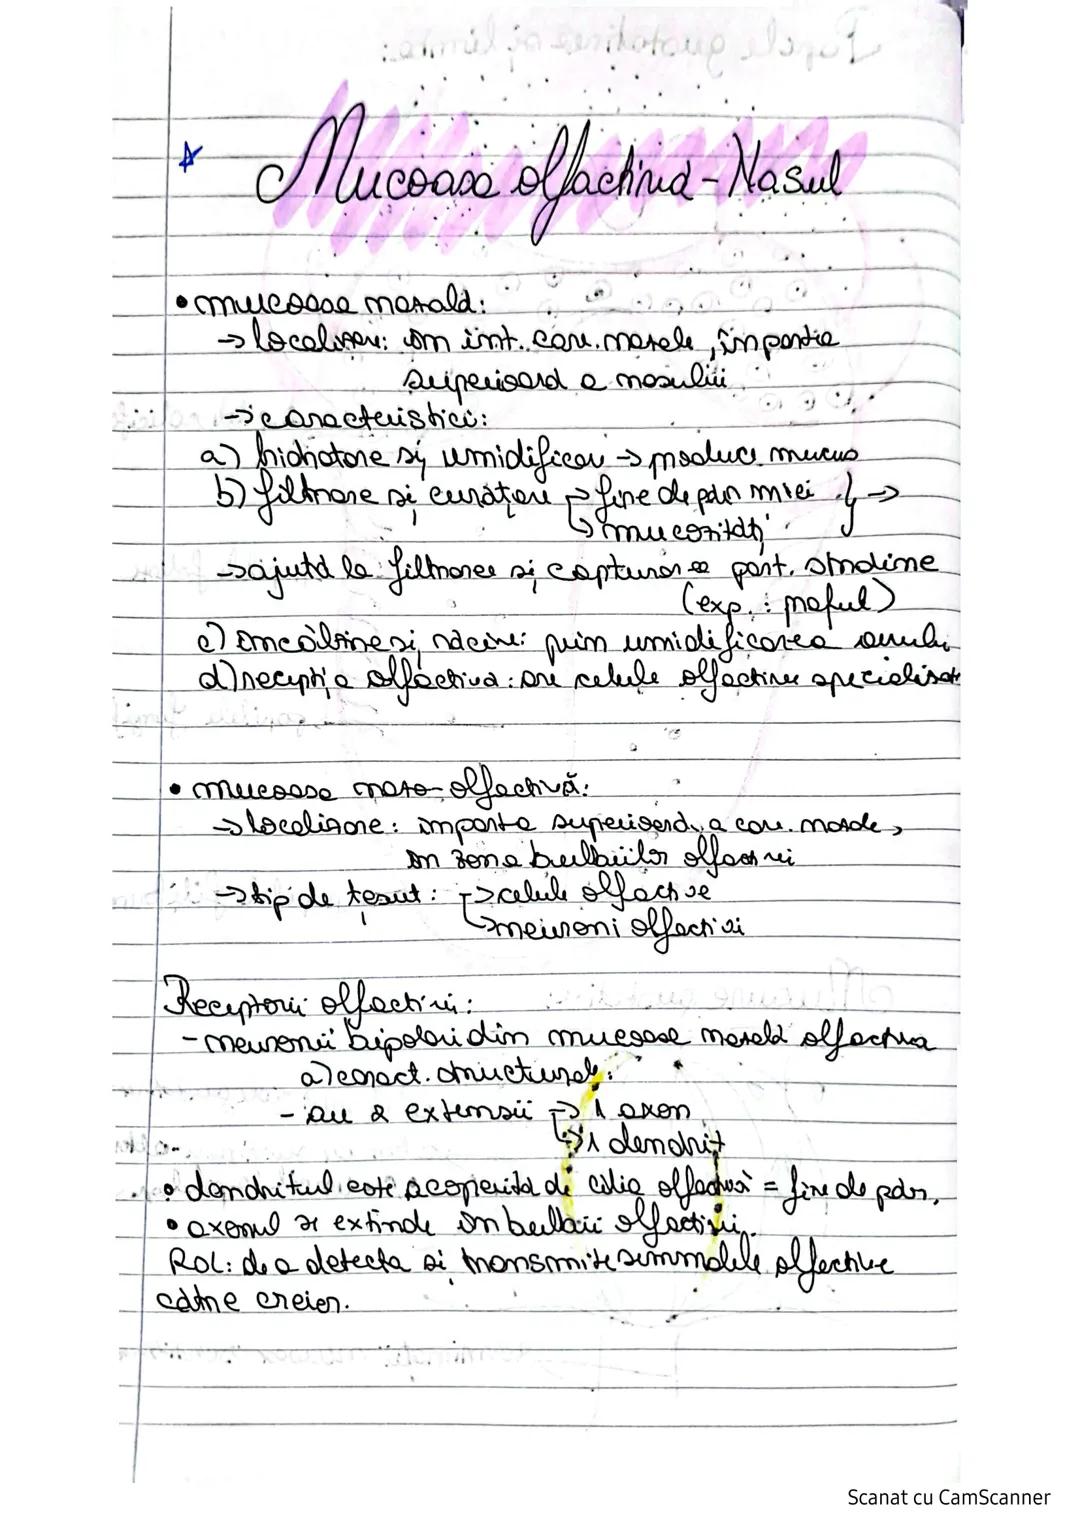 Mucoasa olfactivă - Nasul
• mucoasa nazală:
→ localizare: în int. cav. nazale, în partea
superioară a nasului
→ caracteristici:
a) hidratare și umidificare → produce mucus
b) filtrare și curățare → fire de păr mici } →
↳ mucozități
→ ajută la filtrarea și capturarea part. străine
(exp.: praful)
c) încălzire și răcire: prin umidificarea aerului
d) recepția olfactivă: are celule olfactive specializate
• mucoasa nazo-olfactivă:
→ localizare: în partea superioară a cav. nazale,
în zona bulbilor olfactivi
→ tip de țesut: → celule olfactive
↳ neuroni olfactivi
Receptorii olfactivi:
- neuronii bipolari din mucoasa nazală olfactivă
a) caract. structurale:
- au 2 extensii → 1 axon
↳ 1 dendrit
• dendritul este acoperită de cilia olfactivă = fire de păr,
• axonul se extinde în bulbii olfactivi.
ROL: de a detecta și transmite semnalele olfactive
către creier.
Scanat cu CamScanner